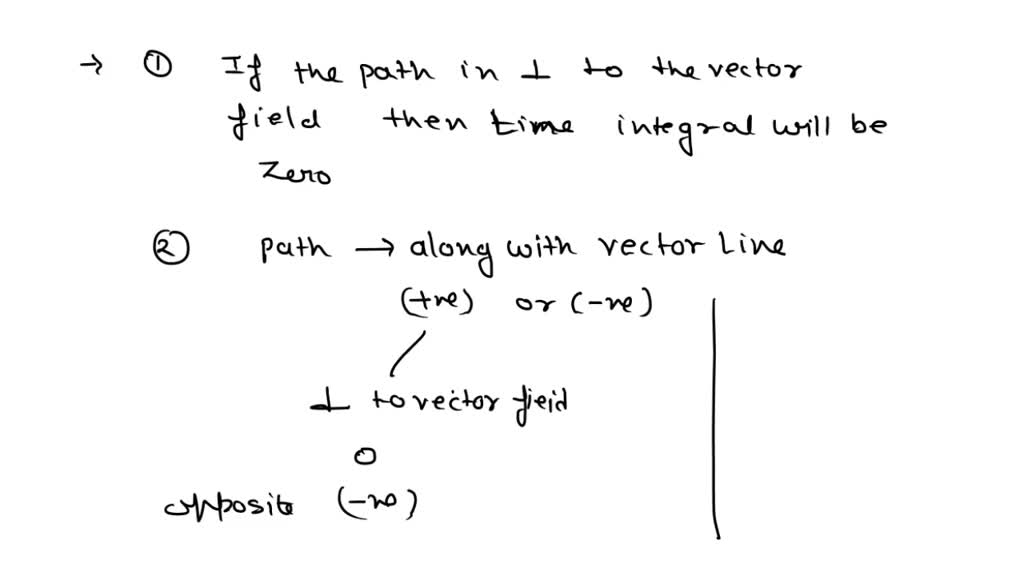 → ① If the path in ⊥ to the vector
field then time integral will be
Zero
② path → along with vector Line
(+ve) or (-ve)
⊥ to vector field
0
opposite (-ve)